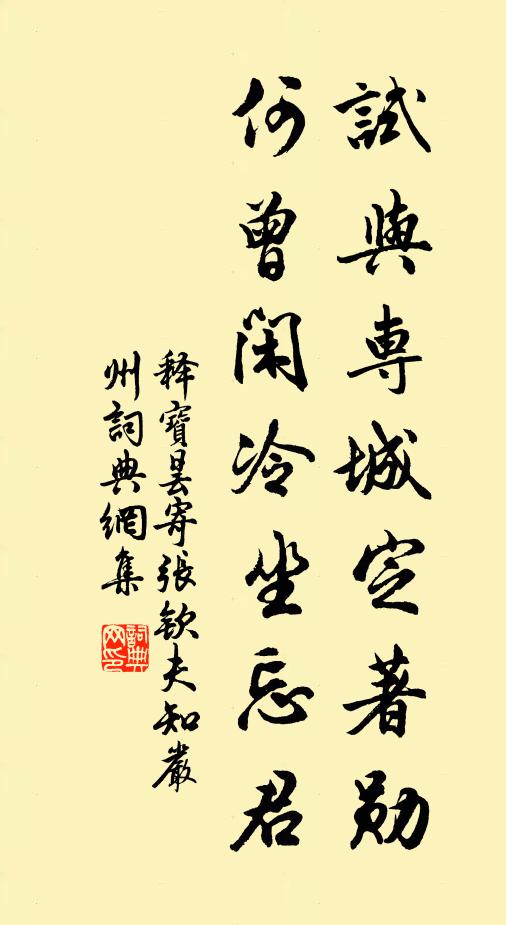 試與専城定著勛
何曾閑冷坐忘君
釋寶曇寄張欽夫知嚴
州詞典網集
詞典
网印